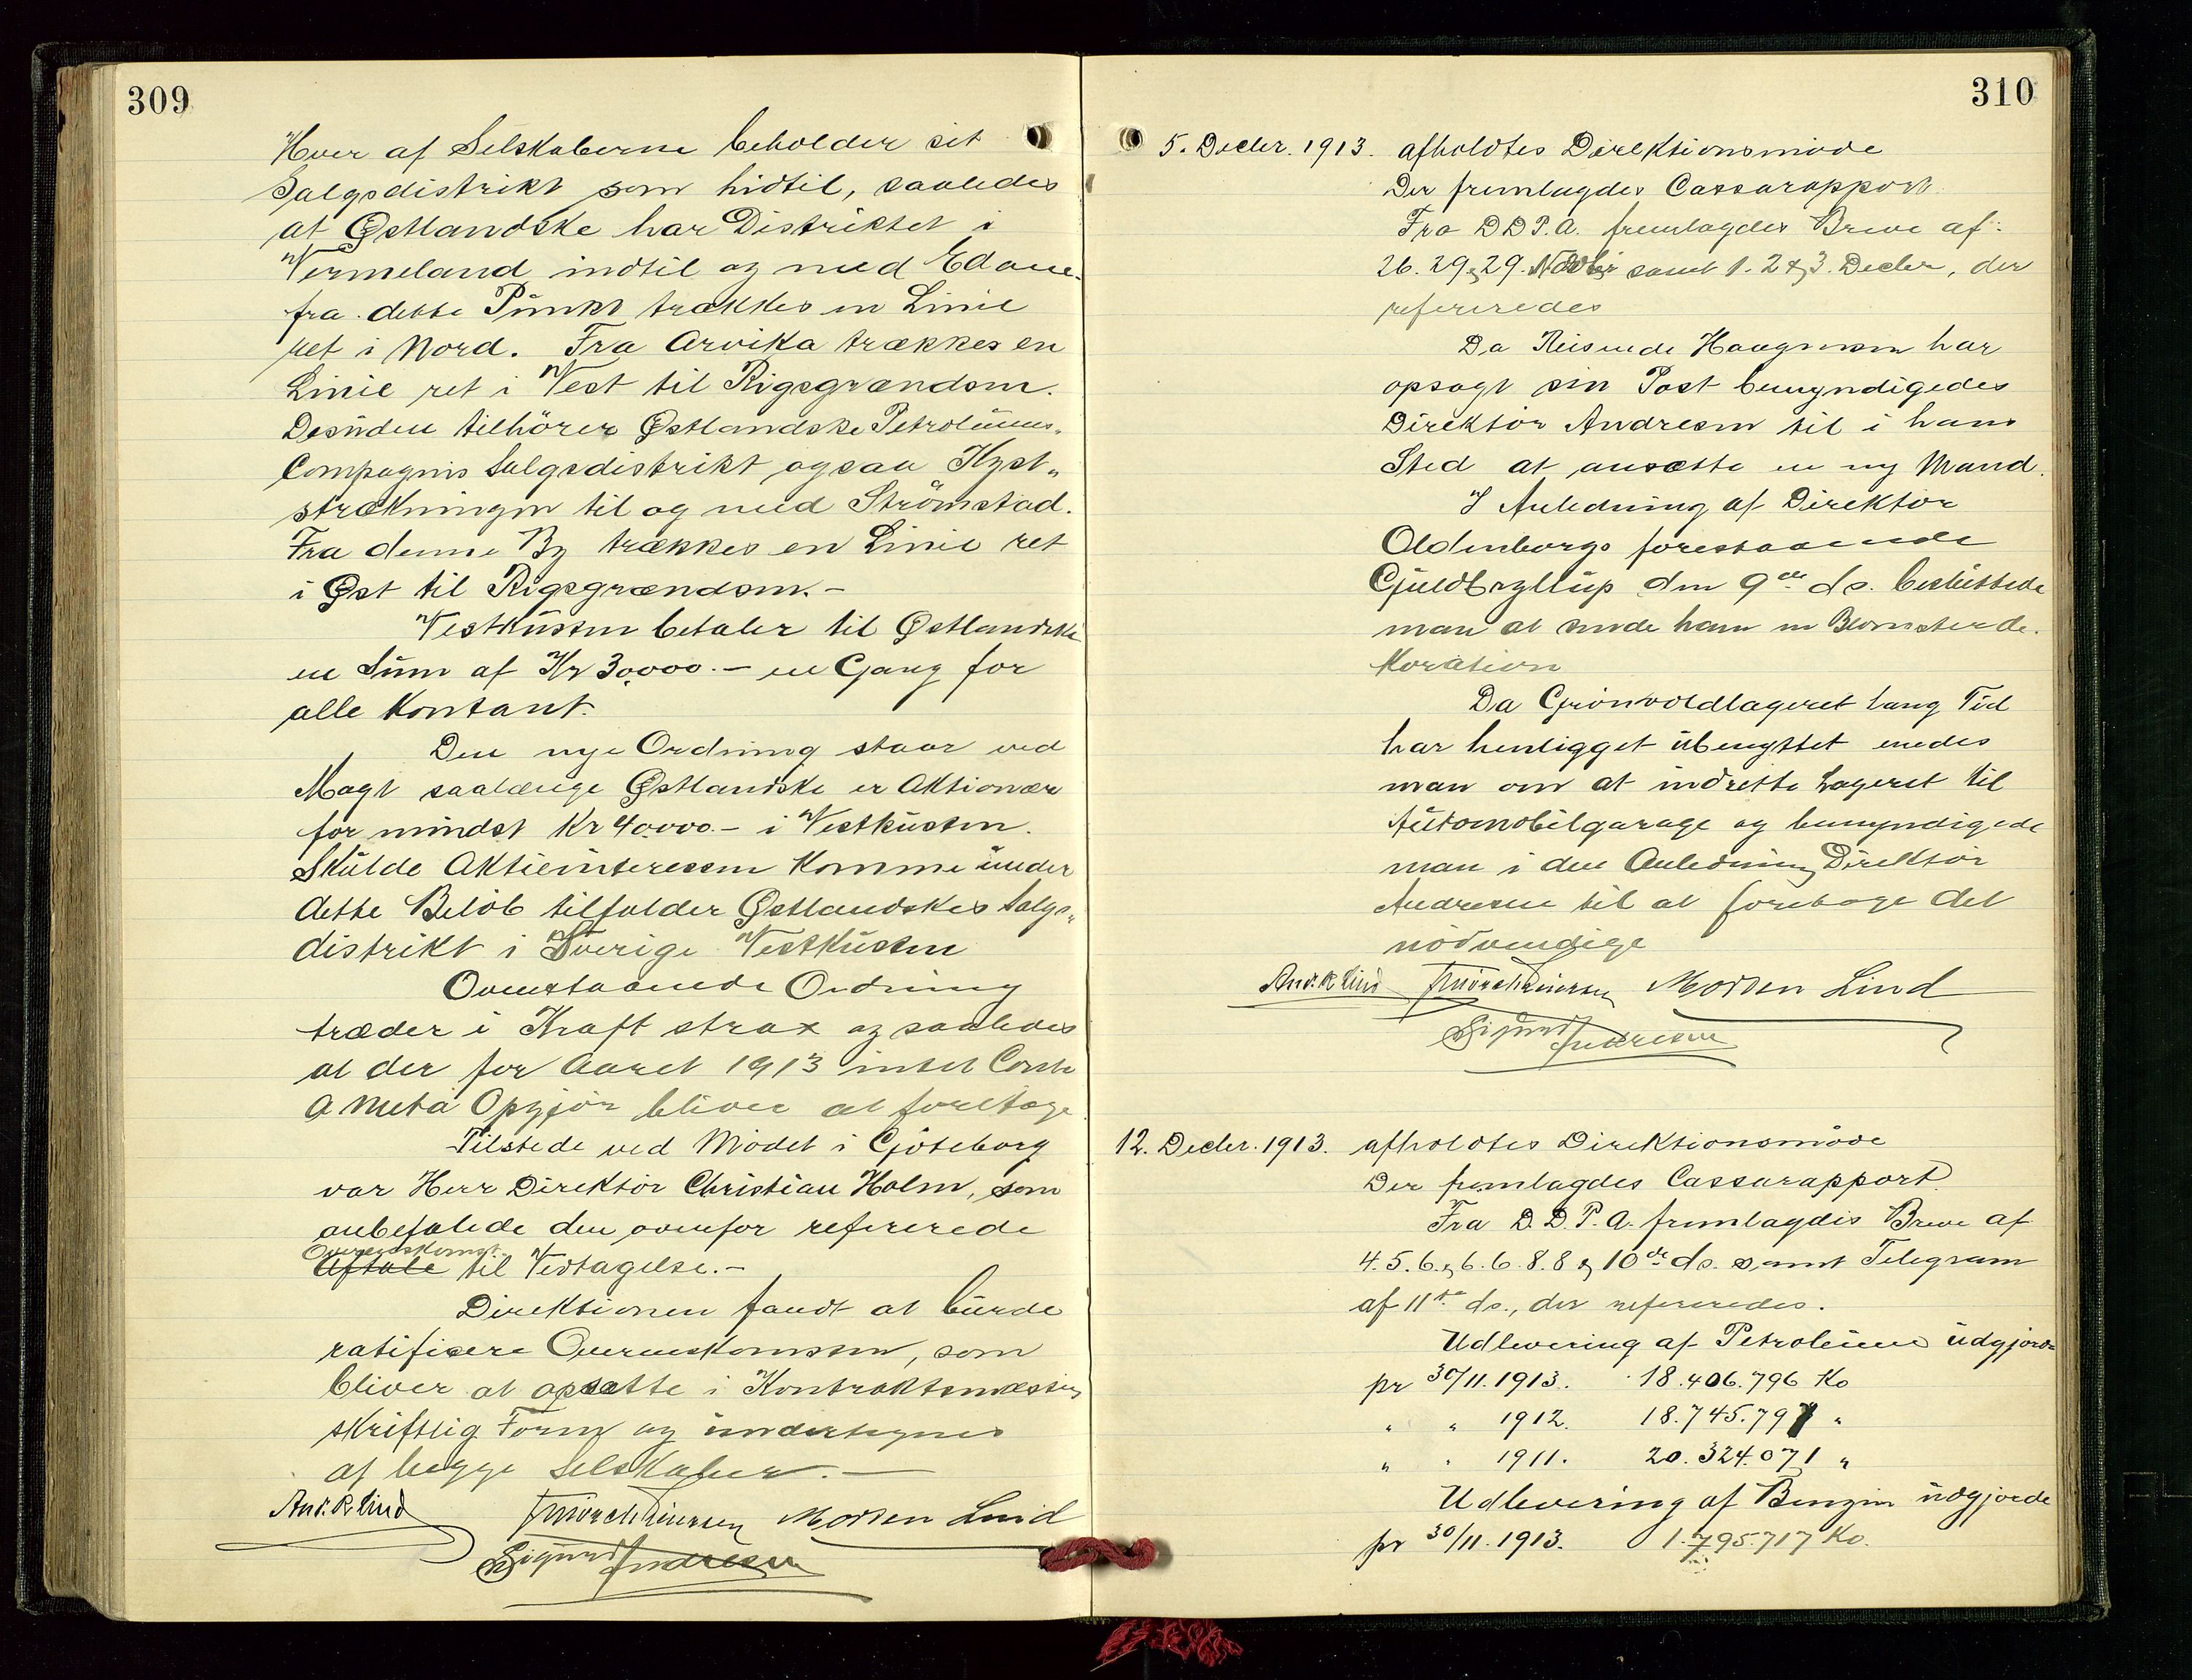 309
Hver af Selskaberne beholder sit
Salgsdistrikt som hidtil, saaledes
at Østlandske har Distriktet i
Vermeland indtil og med Edane.
fra dette Punkt trækkes en Linie
ret i Nord. Fra Arvika trækkes en
Linie ret i Vest til Rigsgrændsen.
Desuden tilhörer Østlandske Petroleums-
Compagnis Salgsdistrikt ogsaa Kyst-
strækningen til og med Strömstad.
Fra denne By trækkes en Linie ret
i Øst til Rigsgrændsen. -
Vestkusten betaler til Østlandske
en Sum af Kr 30,000.- en Gang for
alle Kontant.
Den nye Ordning staar ved
Magt saalænge Østlandske er Aktionær
for mindst Kr 40.000.- i Vestkusten.
Skulde Aktieinteressen komme under
dette Belöb tilfalder Østlandskes Salgs-
distrikt i Sverige Vestkusten
Ovenstaaende Ordning
træder i Kraft strax og saaledes
at der for Aaret 1913 intet Conto
a Meta Opgjör bliver at foretage
Tilstede ved Mödet i Gjöteborg
var Herr Direktör Christian Holm, som
anbefalede den ovenfor refererede
Overenskomst
Aftale til Vedtagelse. -
Direktionen fandt at burde
ratificere Overenskomsten, som
bliver at opsætte i Kontraktsmæssig
skriftlig Form og undertegnes
af begge Selskaber. -
And. R. Lind Morten Lind
Sigurd Andresen
310
5. Decbr. 1913. afholdtes Direktionsmöde
Der fremlagdes Cassarapport.
Fra D D P. A. fremlagdes Breve af:
26. 29 & 29. Novbr samt 1. 2 & 3. Decbr, der
refereredes
Da Reisende Haagensen har
opsagt sin Post bemyndigedes
Direktör Andresen til i hans
Sted at ansætte en ny Mand.
I Anledning af Direktör
Oldenborgs forestaaende
Guldbryllup den 9de ds. besluttede
man at sende ham en Blomsterde-
koration
Da Grönvoldlageret lang Tid
har henligget ubenyttet enedes
man om at indrette Lageret til
Automobilgarage og bemyndigede
man i den Anledning Direktör
Andresen til at foretage det
nödvendige
And. R. Lind Morten Lind
Sigurd Andresen
12. Decbr. 1913. afholdtes Direktionsmöde
Der fremlagdes Cassarapport.
Fra D. D. P. A. fremlagdes Breve af
4. 5. 6. & 6. 6. 8. 8 & 10de ds. samt Telegram
af 11te ds., der refereredes.
Udlevering af Petroleum udgjorde
pr 30/11. 1913. 18.406.796 Ko
" " 1912. 18.745.797 "
" " 1911. 20.324.071 "
Udlevering af Benzin udgjorde
pr 30/11. 1913. 1.795.717 Ko.